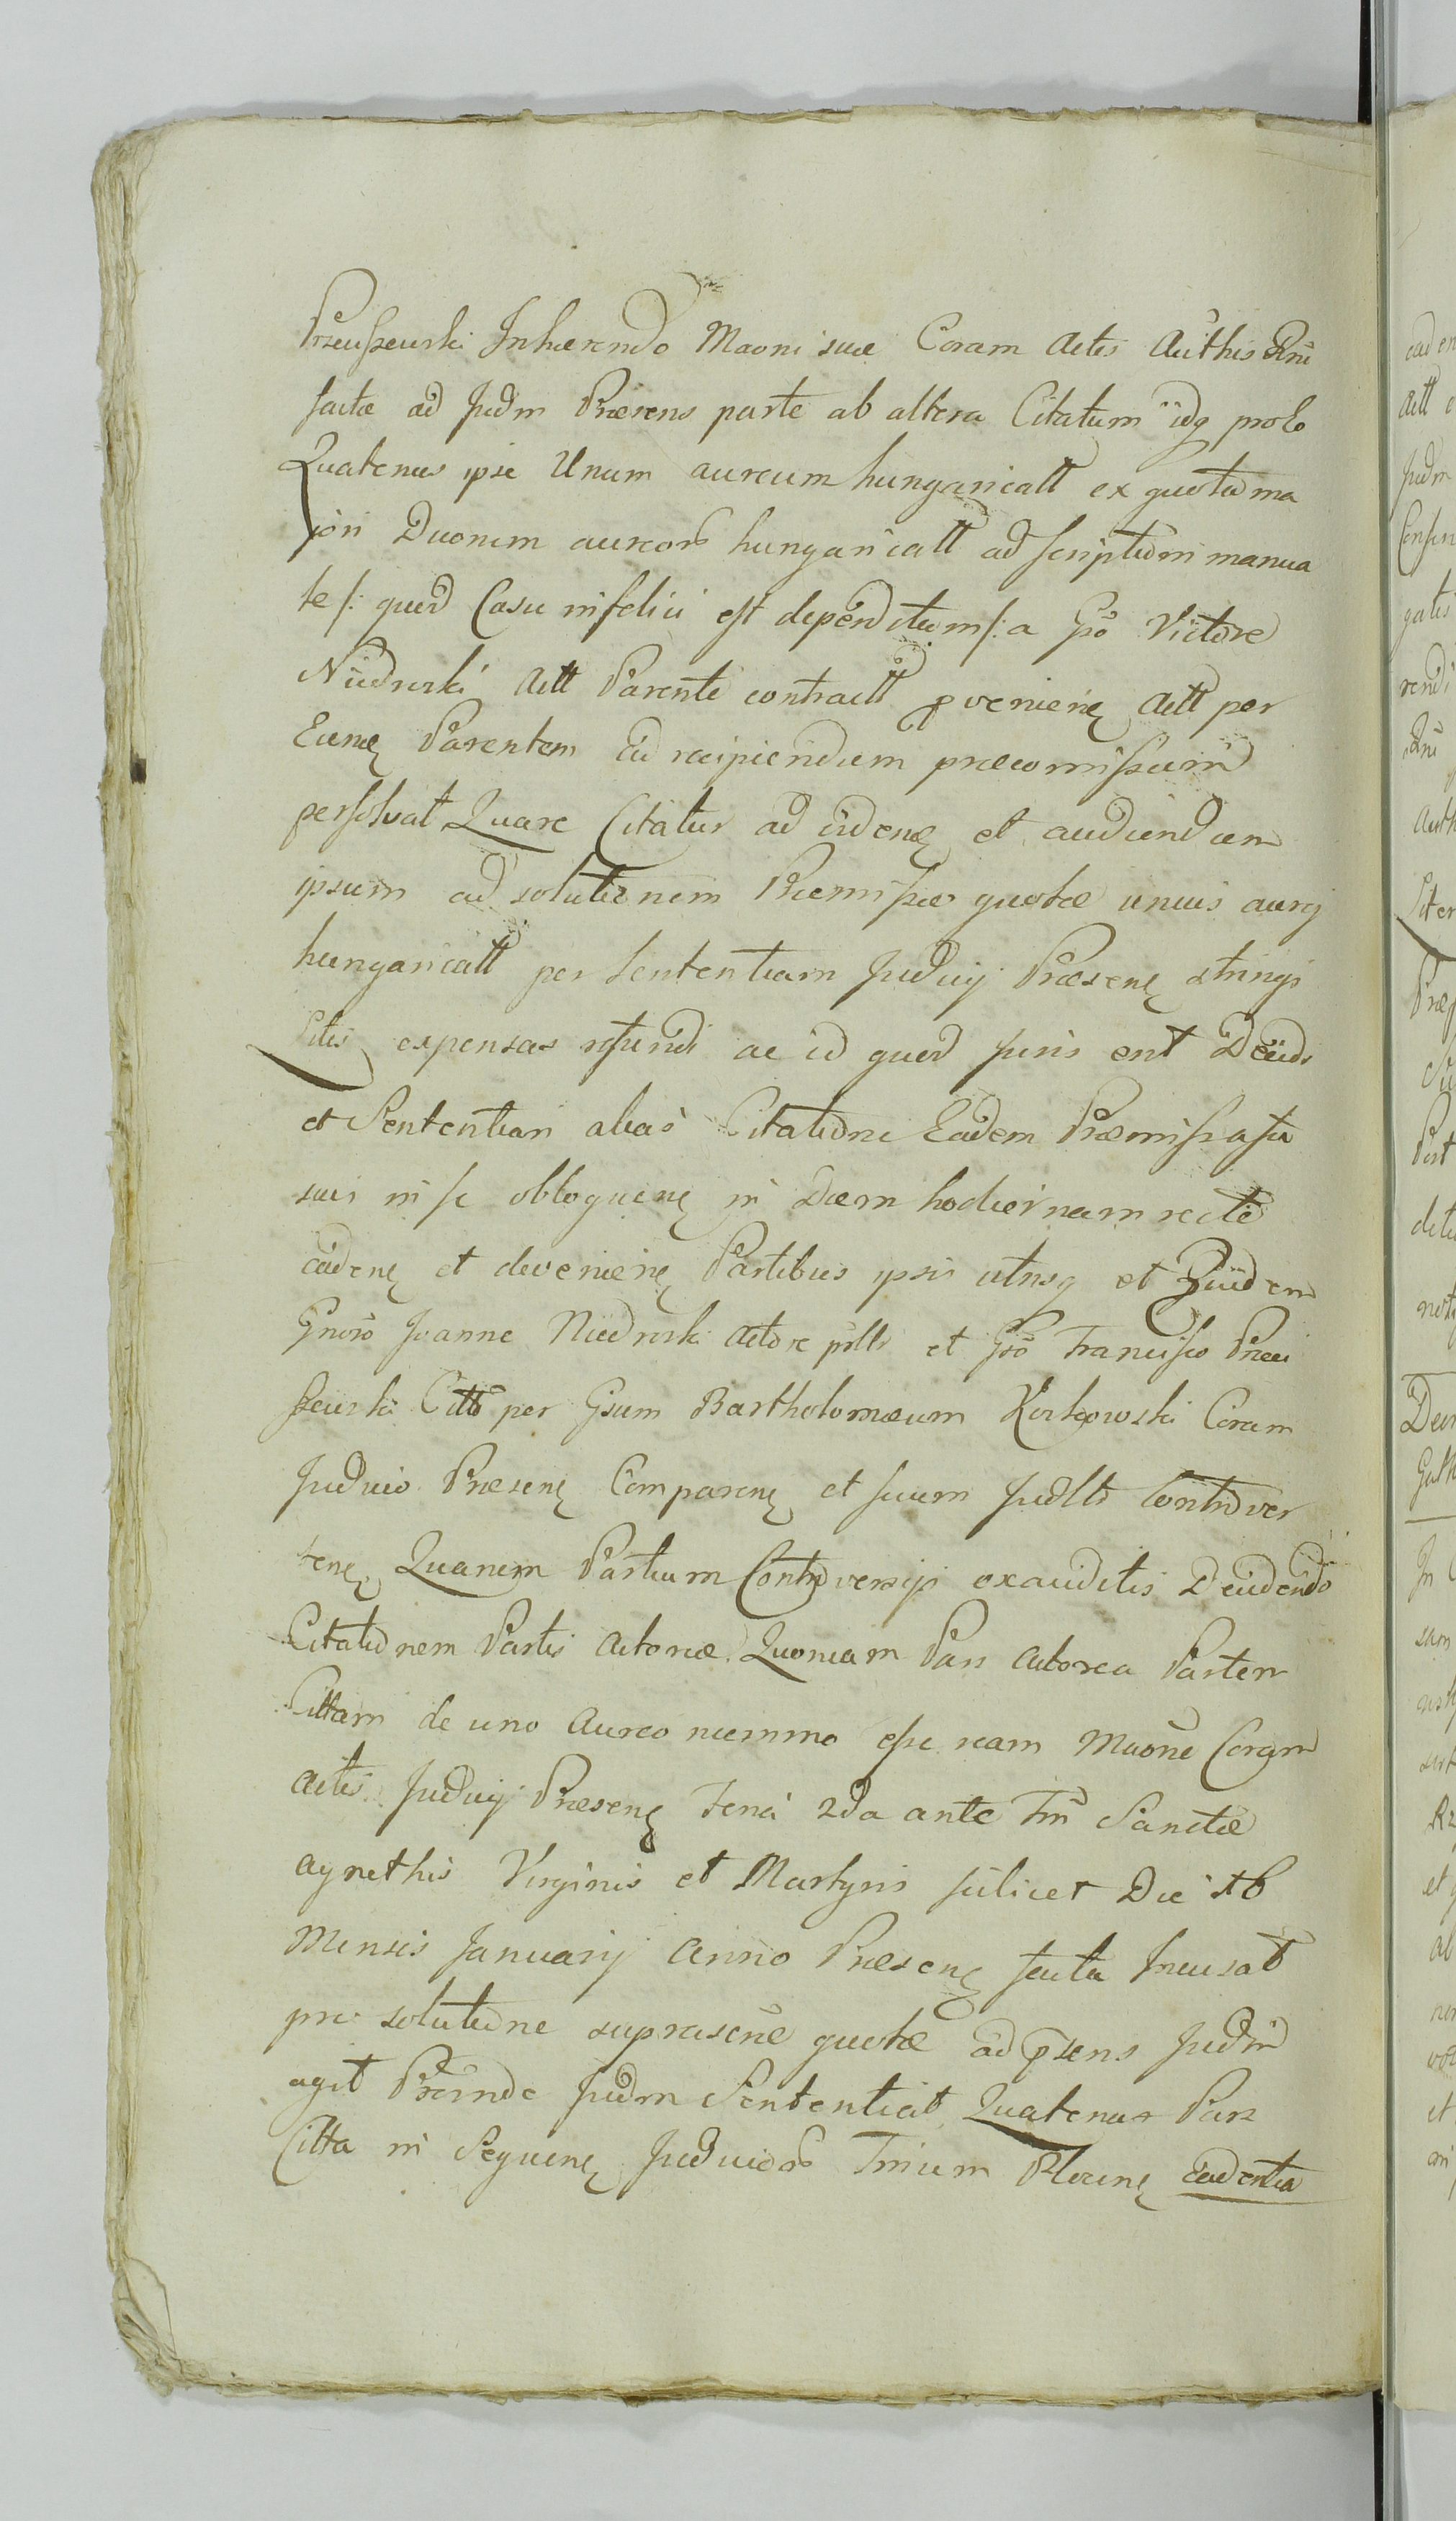 Przeuszewski Inhærendo Maoni suæ Coram Actis Authis Rni
factæ ad Judm Præsens parte ab altera Citatum idq prolo
Quatenus ipse Unum aureum hungaricatt ex quota ma
jori Duorum aureor hungaricatt ad scriptum manua
le /: quod Casu infelici est deperditum /: a Gso Victore
Niedrzski Actt Parente contractt pvenien Actt per
Eunq Parentem ad recipiendum præcomissum
persolvat Quare Citatur ad viden et audiendum
ipsum ad solutionem Præmissæ quotæ unius aurej
hungaricatt per Sententiam Judicij Præsen stringi
Litis expensas refundi ac id quod juris erit Decidi
et Sententiari alias Citatione Eadem Præmissa su
suis in se obloquen in Diem hodiernam recte
caden et devenien Partibus ipsis utrisq et Quidem
Gneroso Joanne Niedrzski Actore pslr et Gso Francisco Przeu
szewski Citto per Gsum Bartholomæum Kirkowski Coram
Judicio Præsen Comparen et suum Judltr Controver
ten Quarum Partium Controversijs exauditis Decidendo
Citationem Partis Actoreæ Quoniam Pars Actorea Partem
Cittam de uno Aureo nummo esse ream Maone Coram
Actis Judicij Præsen Feria 2da ante Fm Sanctæ
Agnethis Virginis et Martyris scilicet Die 16
Mensis Januarij Anno Præsen facta Incusat
pro solutione suprascriæ quotæ ad psens Judm
agit Proinde Judm Sententiat Quatenus Pars
Citta in Sequen Judicior Trium Plocen Cadentia